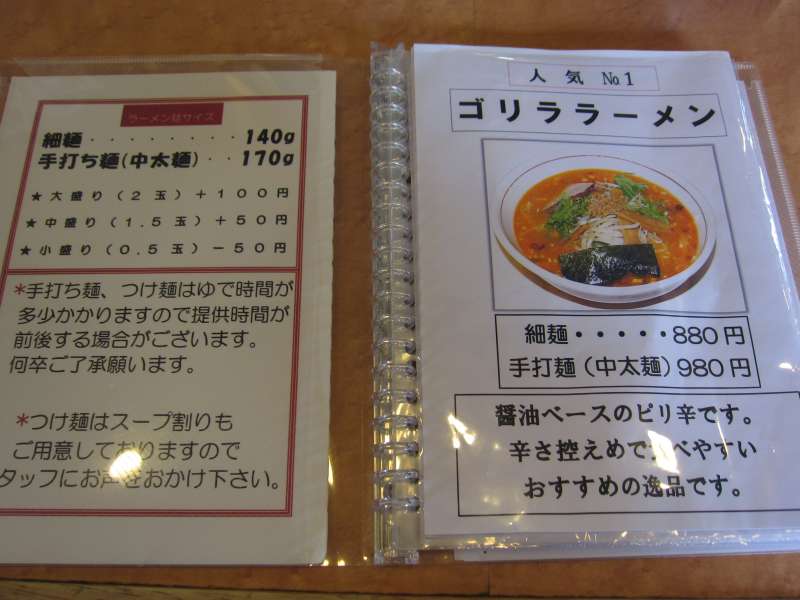 ラーメン麺サイズ
細麺・・・・・・・・・140g
手打ち麺(中太麺)・・170g
★大盛り(2玉)+100円
★中盛り(1.5玉)+50円
★小盛り(0.5玉)−50円
*手打ち麺、つけ麺はゆで時間が
多少かかりますので提供時間が
前後する場合がございます。
何卒ご了承願います。
*つけ麺はスープ割りも
ご用意しておりますので
タッフにお声をおかけ下さい。
人気 №1
ゴリララーメン
細麺・・・・・880円
手打麺(中太麺)980円
醤油ベースのピリ辛です。
辛さ控えめで べやすい
おすすめの逸品です。